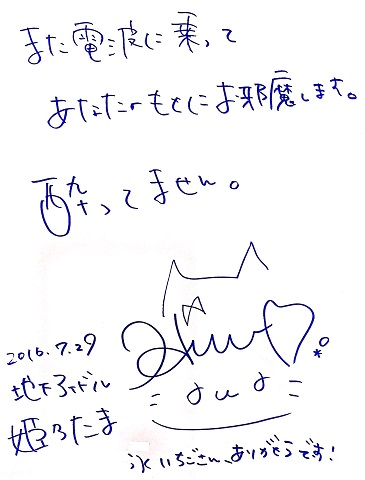 また電波に乗って
あなたのもとにお邪魔します。
酔ってません。
2016.7.29
地下アイドル
姫乃たま
氷いちごさん、ありがとうです!